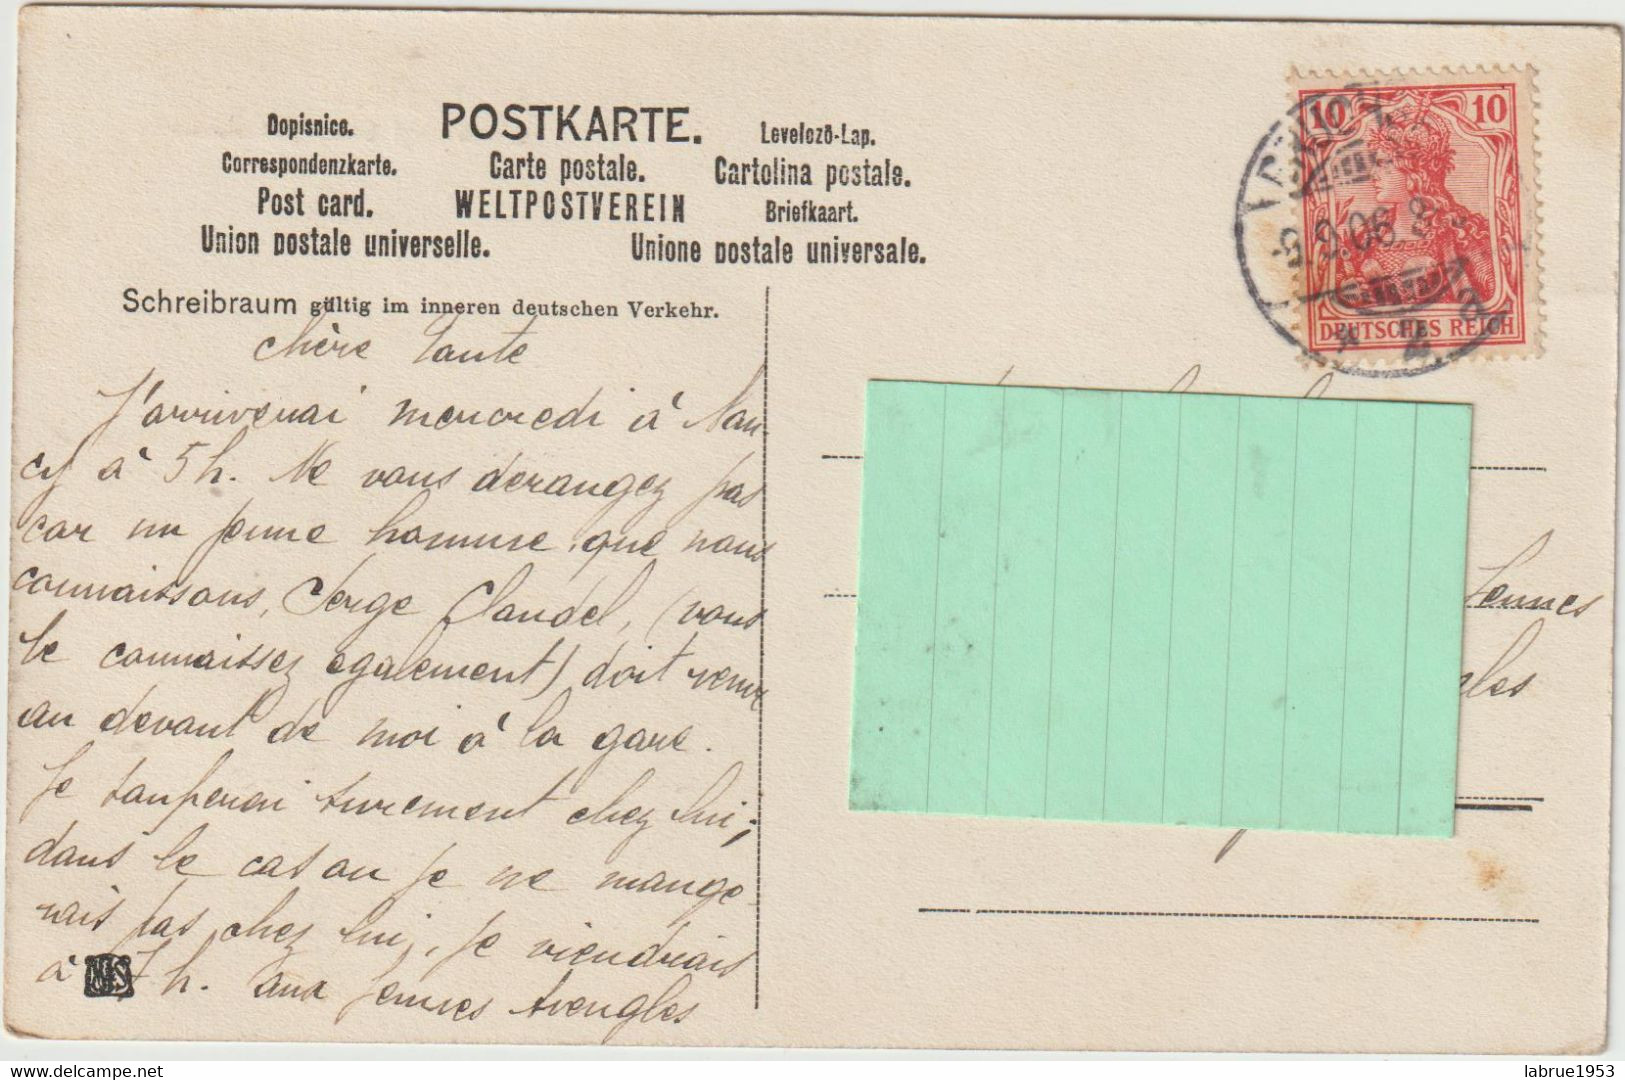 POSTKARTE.
Dopisnice.
Levelező-Lap.
Correspondenzkarte.
Carte postale.
Cartolina postale.
Post card.
WELTPOSTVEREIN
Briefkaart.
Union postale universelle.
Unione postale universale.
Schreibraum gültig im inneren deutschen Verkehr.
chère Tante
J'arriverai mercredi à Nan-
cy à 5h. Ne vous derangez pas
car un jeune homme, que nous
connaissons, Serge Claudel, (vous
le connaissez egalement) doit venir
au devant de moi à la gare.
Je souperai surement chez lui;
dans le cas ou je ne mange-
rais pas chez lui, je viendrais
à 7 h. aux Jeunes Aveugles
10 10
5.9.06 8
DEUTSCHES REICH
Jeunes
gles
delcampe.net
labrue1953